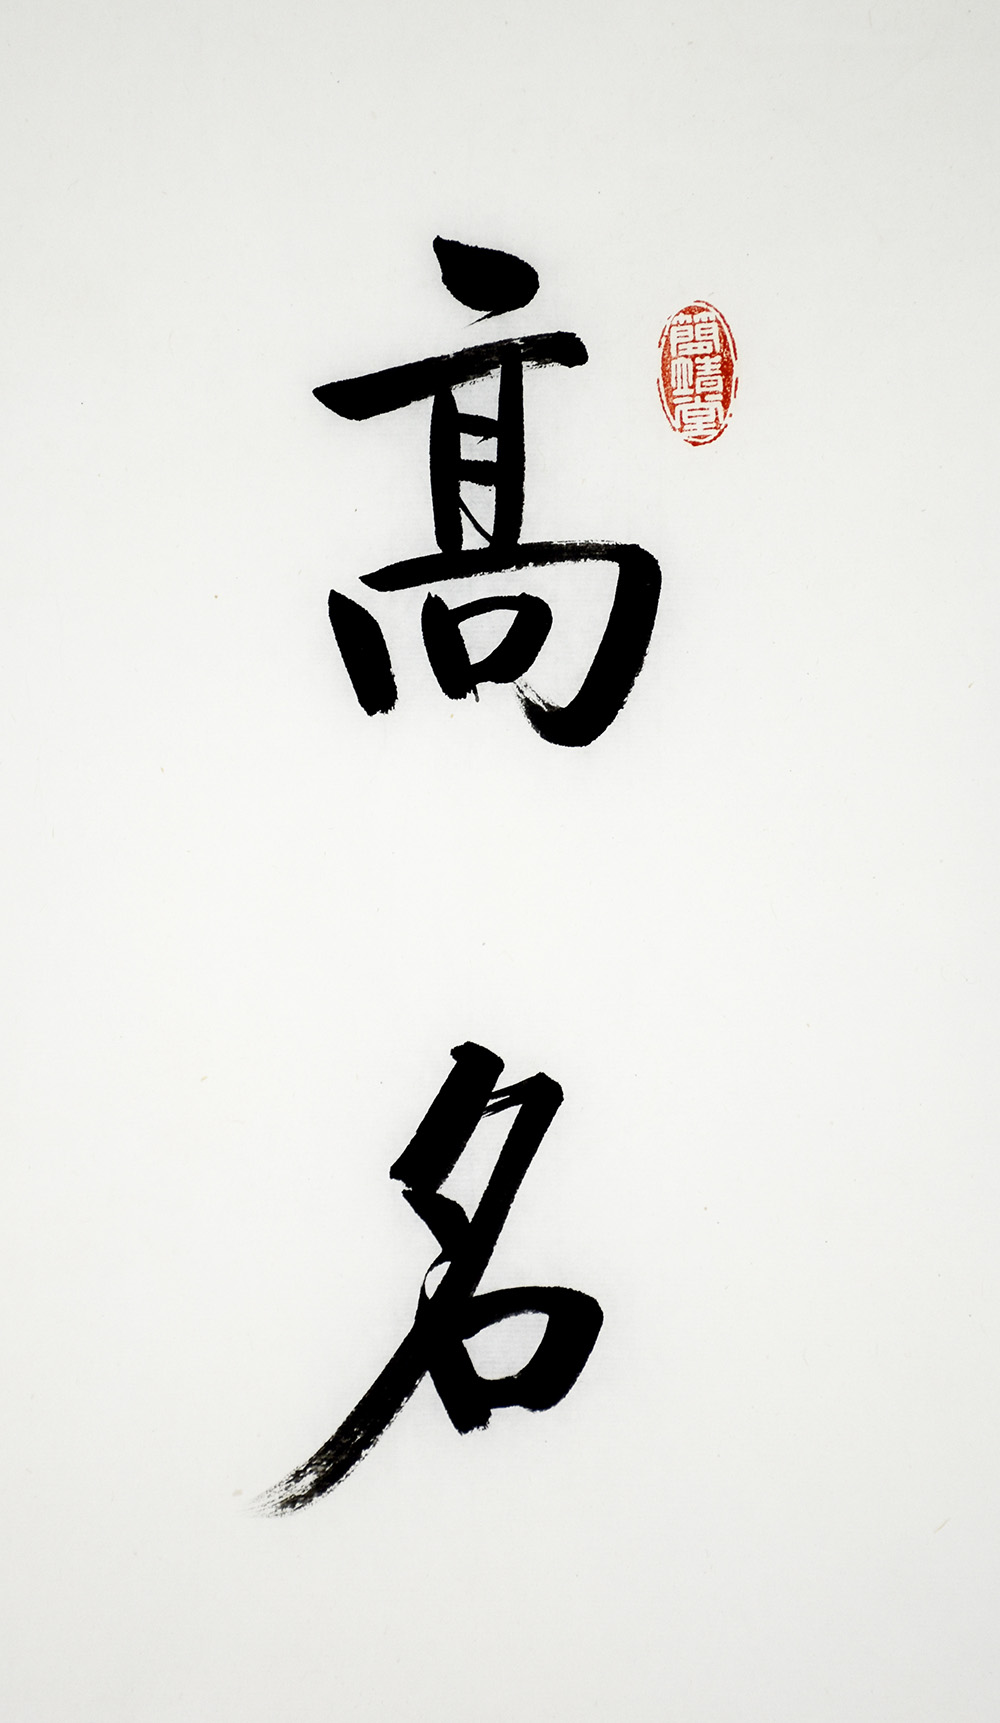 髙名
簡靖堂